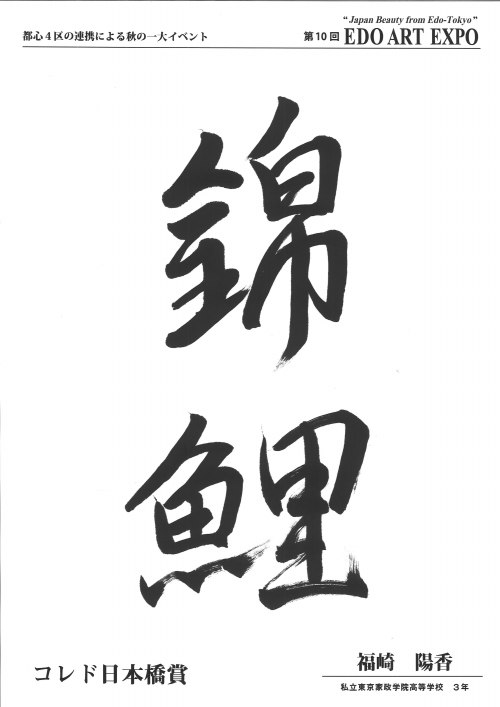 都心4区の連携による秋の一大イベント
"Japan Beauty from Edo-Tokyo"
第10回 EDO ART EXPO
錦
鯉
コレド日本橋賞
福崎 陽香
私立東京家政学院高等学校 3年